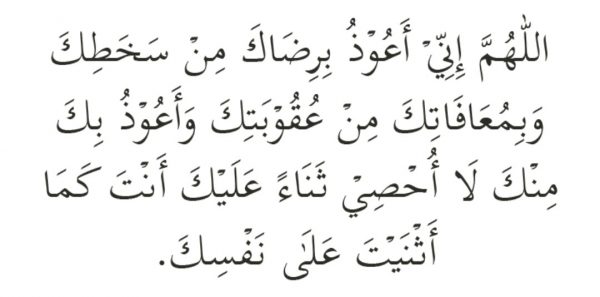 اللّٰهُمَّ إِنِّيْ أَعُوْذُ بِرِضَاكَ مِنْ سَخَطِكَ
وَبِمُعَافَاتِكَ مِنْ عُقُوْبَتِكَ وَأَعُوْذُ بِكَ
مِنْكَ لَا أُحْصِيْ ثَنَاءً عَلَيْكَ أَنْتَ كَمَا
أَثْنَيْتَ عَلَى نَفْسِكَ.